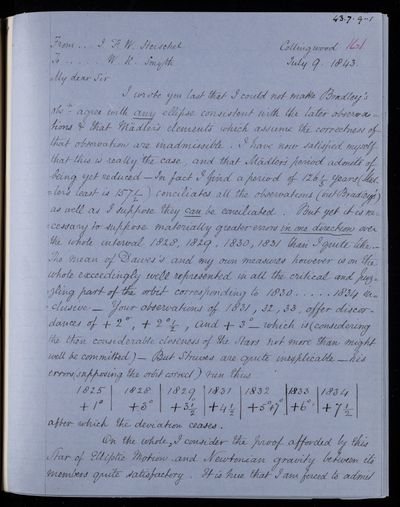 43.7.9-1
From ... J. F. W. Herschel Collingwood 161
To ..... W. H. Smyth July 9. 1843.
My dear Sir
I wrote you last that I could not make Bradley's
obsns agree with any ellipse consistent with the later observa-
tions & that Mädler's elements which assume the correctness of
that observation are inadmissible. I have now satisfied myself
that this is really the case, and that Mädler's period admits of
being yet reduced – In fact I find a period of 126 1/3 years (Mäd-
ler's last is 157 1/2) conciliates all the observations (not Bradley's)
as well as I suppose they can be conciliated. But yet it is ne-
cessary to suppose materially greater errors in one direction over
the whole interval 1828, 1829, 1830, 1831 than I quite like. –
The mean of Dawes's and my own measures however is on the
whole exceedingly well represented in all the critical and puz-
zling part of the orbit corresponding to 1830 ...... 1834 in-
clusive – Your observations of 1831, 32, 33, offer discor-
dances of + 2°, + 2°1/2, and + 3° – which is (considering
the then considerable closeness of the Stars not more than might
well be committed) – But Struves are quite inexplicable – his
errors, supposing the orbit correct) run thus
1825 | 1828 | 1829 | 1831 | 1832 | 1833 | 1834
+1° | +3° | +3 1/2 | +4 1/2 | +5°1/2 | +6° | +7 1/2
after which the deviation ceases.
On the whole, I consider the proof afforded by this
Star of Elliptic Motion and Newtonian gravity between its
members quite satisfactory. It is true that I am forced to admit